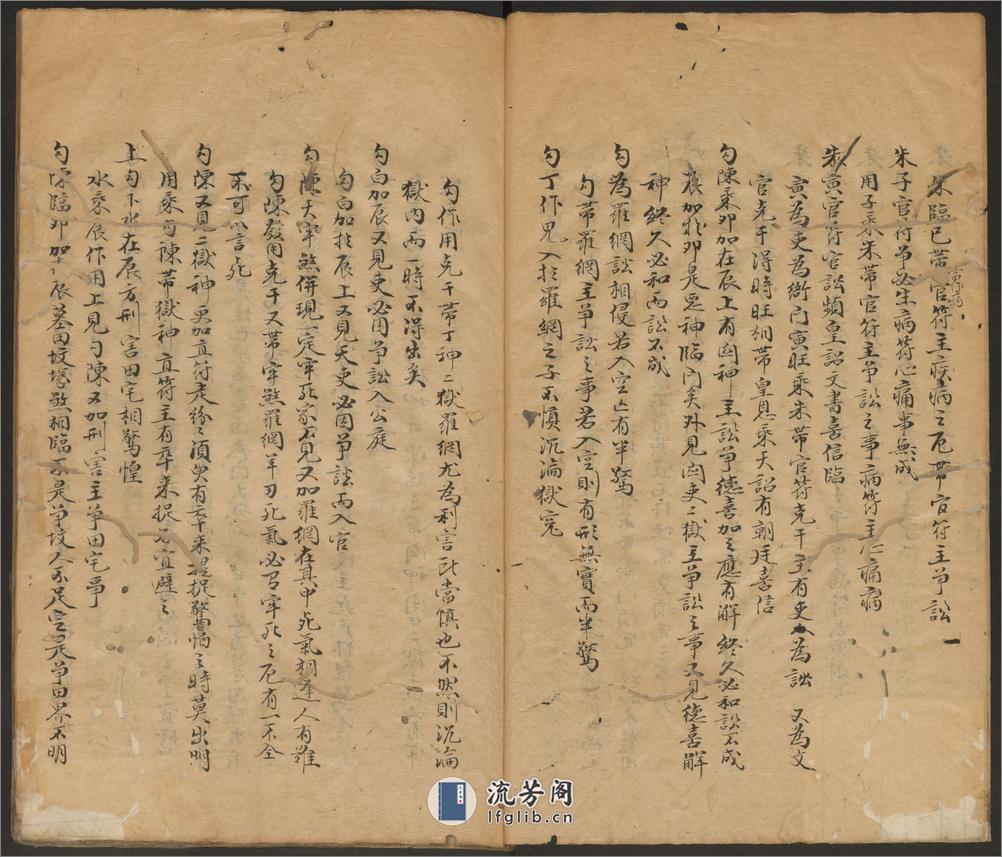 朱臨巳帶官符主疾病之厄帶官符主爭訟
朱子官符爭必生病符心痛事無成
用子乘朱帶官符主爭訟之事病符主心痛病
朱寅官符官訟頻皇詔文書喜信臨
寅為吏為衙門寅旺乘朱帶官符克干主有吏人為訟 又為文
官克干得時旺相帶皇恩乘天詔有朝廷喜信
勾陳乘卯加在辰上有凶神主訟爭德喜加之應有解終久必和訟不成
辰加於卯是惡神臨門矣外見凶吏二獄主爭訟之事又見德喜解
神終久必和而訟不成
勾為羅網訟相侵若入空亡有半驚
勾帶羅網主爭訟之事若入空則有形無實而半驚
勾丁作鬼入於羅網之子不慎沉淪獄冤
勾作用克干帶丁神二獄羅網尤為利害此當慎也不然則沉淪
獄內而一時不得出矣
勾白加辰又見吏必因爭訟入公庭
勾白加於辰上又見天吏必因爭訟而入官
勾陳天牢煞併現一定牢死不見又加羅網在其中死氣相逢人有難
勾陳發用克干又帶牢煞羅網羊刃死氣必有牢死之厄有一不全
不可以言死
勾陳又見二獄神更加直符是終之須臾有牽來捉驚怕之時莫出明
用乘勾陳帶獄神直符主有卒來捉宜避之
上勾下水在辰方刑害田宅相驚惶
水乘辰作用上見勾陳又加刑害主爭田宅事
勾陳臨卯加於辰墓田墳塚煞相臨不是爭墳人不足定是爭田界不明
流芳阁
lfglib.cn